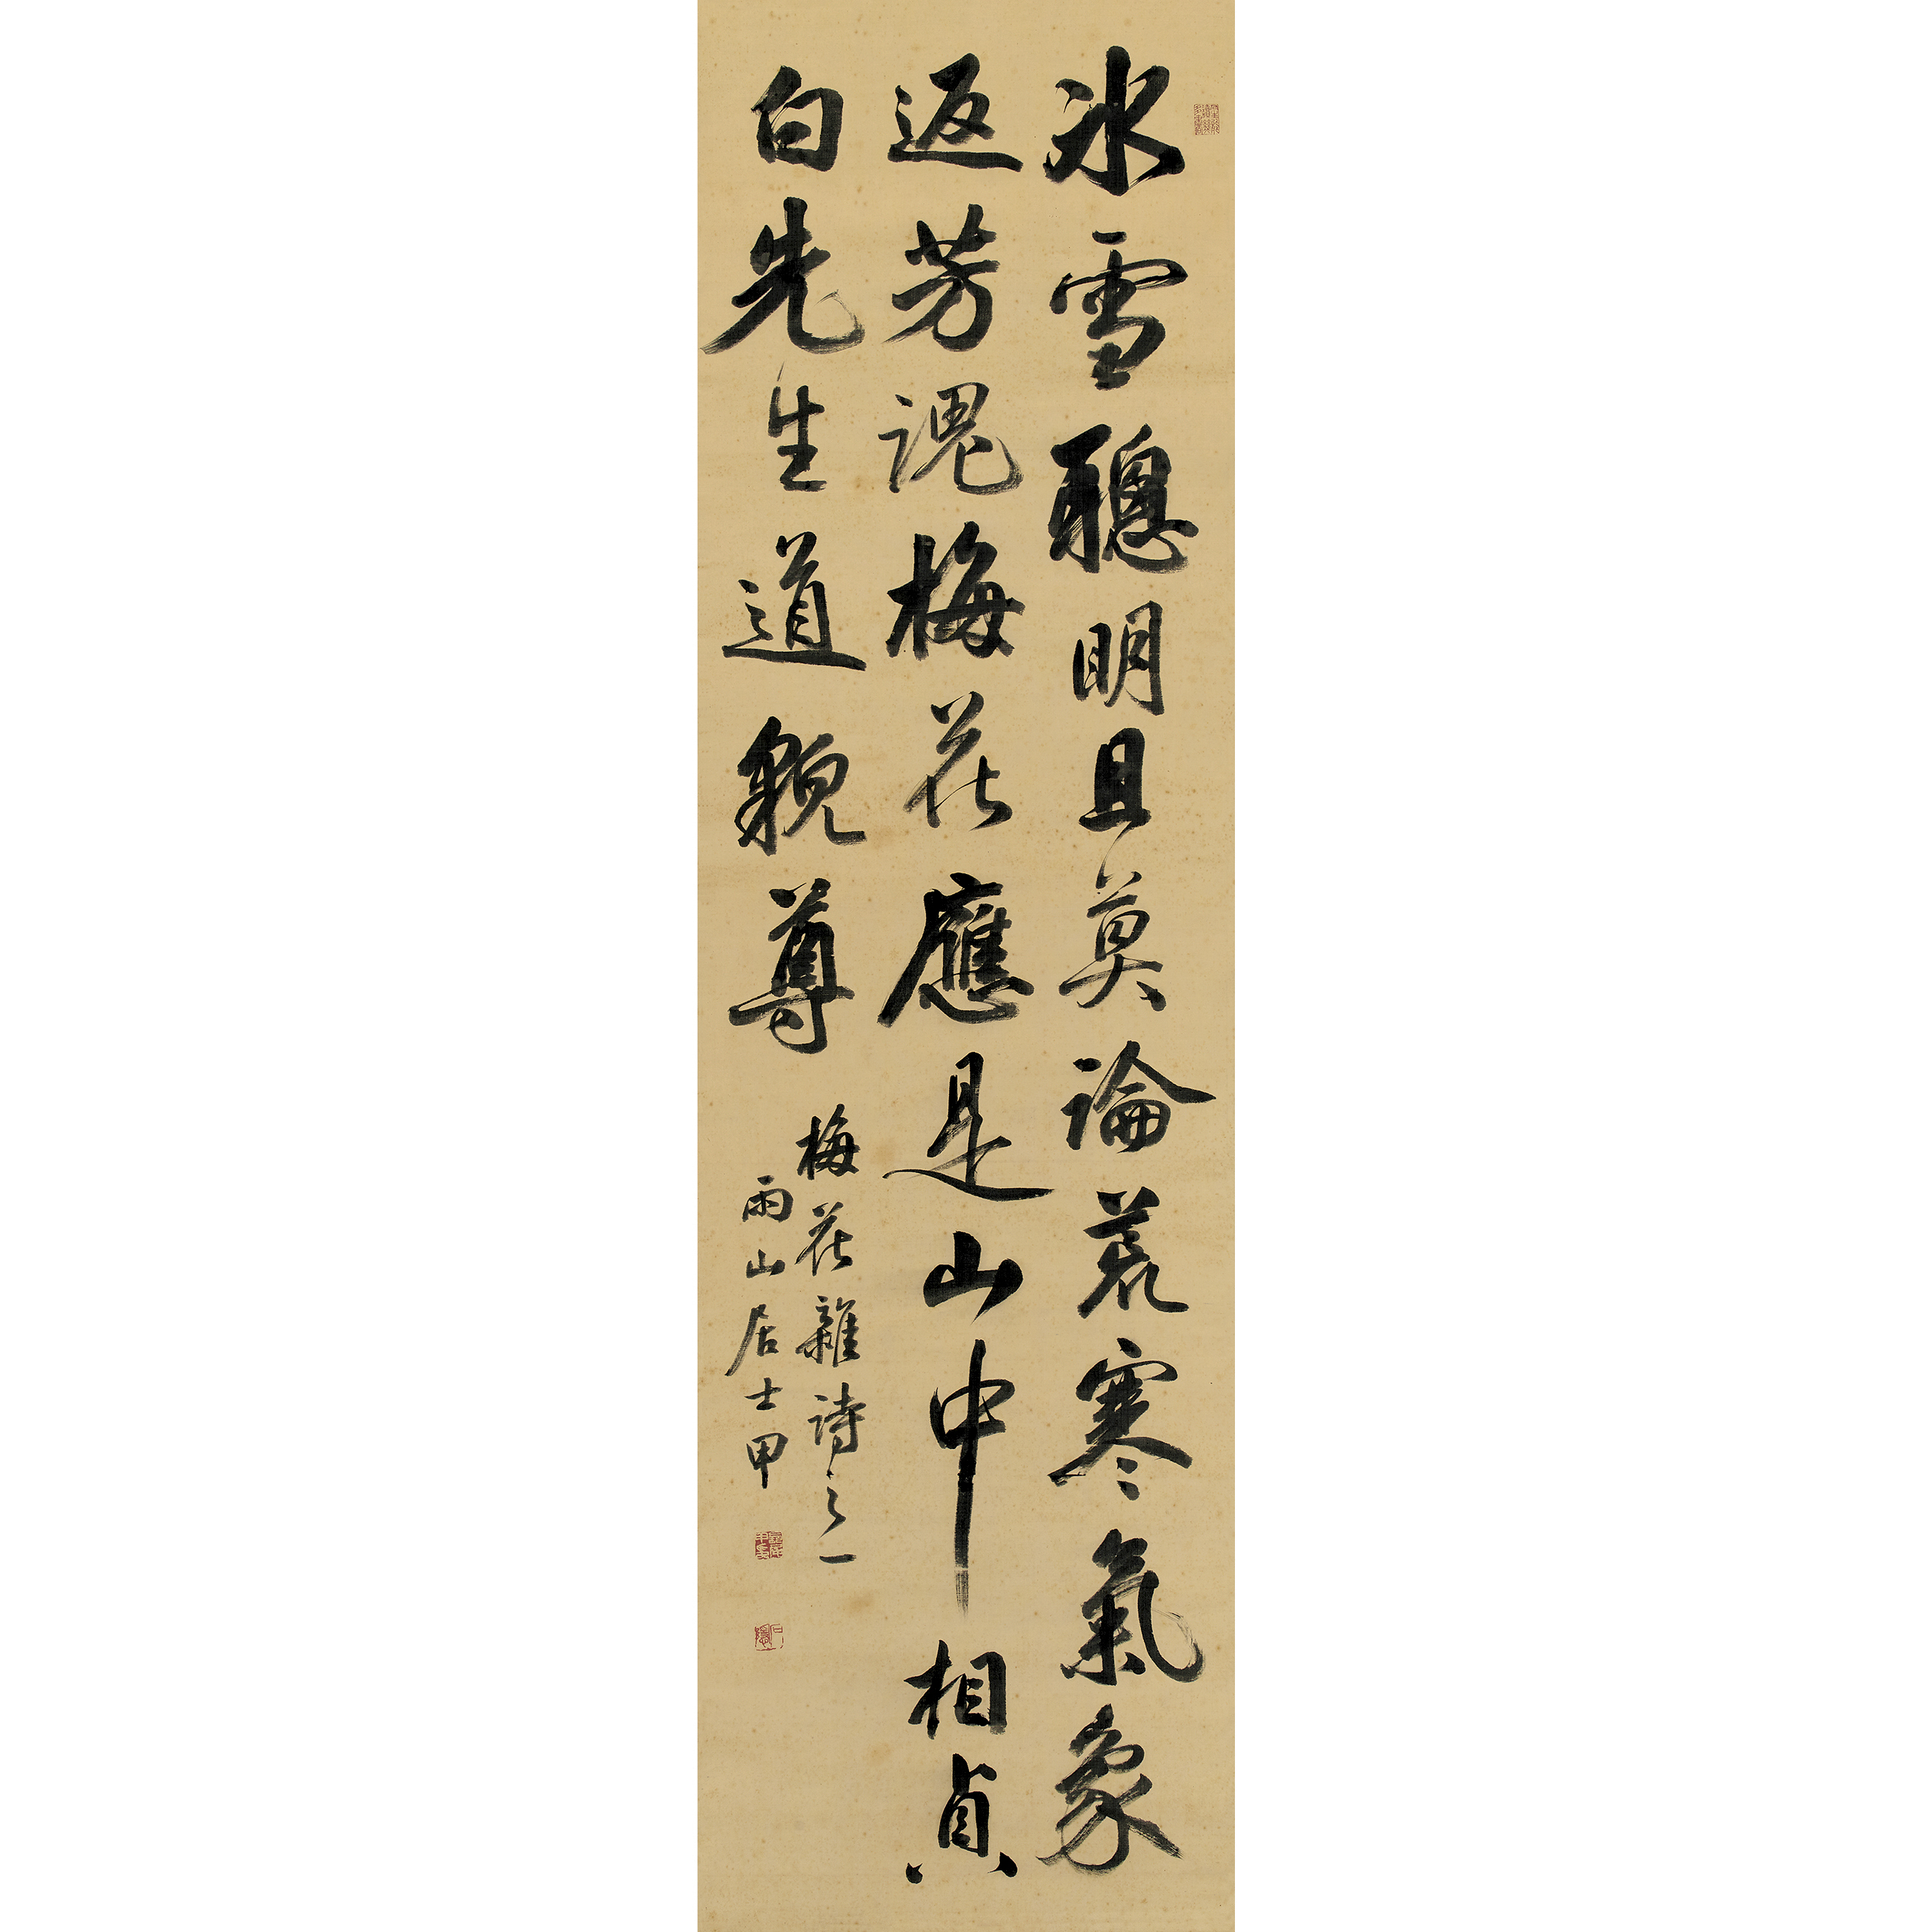 冰雪聰明且莫論荒寒氣象
返芳魂梅花應是山中相貞
白先生道貌尊
梅花雜詩之一
雨山居士甲